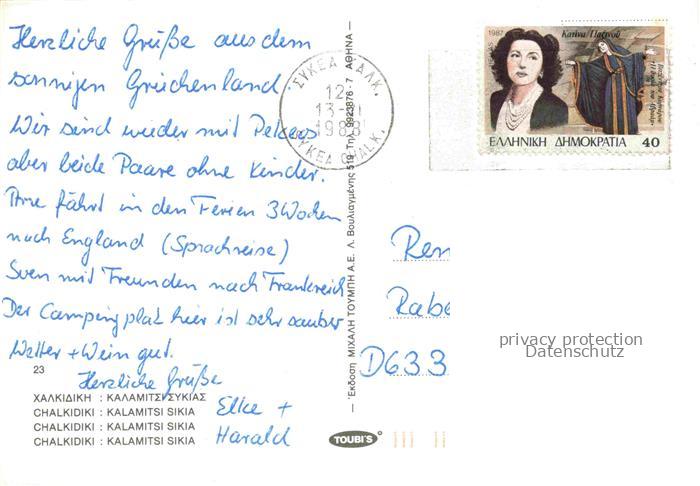 Herzliche Grüße aus dem
sonnigen Griechenland.
Wir sind wieder mit
aber beide Paare ohne Kinder.
fährt in den Ferien 3 Wochen
nach England (Sprachreise)
Sven mit Freunden nach Frankreich
Der Campingplatz hier ist sehr sauber
Wetter + Wein gut.
Herzliche Grüße
Elke +
Harald
23
ΧΑΛΚΙΔΙΚΗ : ΚΑΛΑΜΙΤΣΙ ΣΥΚΙΑΣ
CHALKIDIKI : KALAMITSI SIKIA
CHALKIDIKI : KALAMITSI SIKIA
CHALKIDIKI : KALAMITSI SIKIA
— Έκδοση ΜΙΧΑΛΗ ΤΟΥΜΠΗ Α.Ε. Λ. Βουλιαγμένης 519 Τηλ. 9923876 - 7 ΑΘΗΝΑ —
TOUBI'S
ΣΥΚΕΑ ΧΑΛΚ.
12
1988
SYKEA CHALK.
1987
Κατίνα Παξινού
ΕΛΛΗΝΙΚΗ ΔΗΜΟΚΡΑΤΙΑ 40
Ren
Rabe
D633
privacy protection
Datenschutz